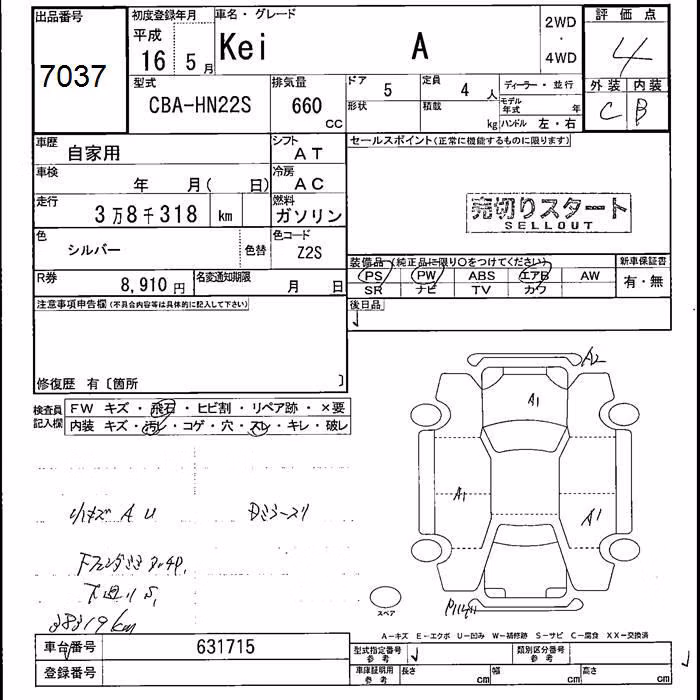 出品番号
7037
初度登録年月
平成
16 5月
車名・グレード
Kei A
2WD
・
4WD
評価点
4
外装 内装
C B
型式
CBA-HN22S
排気量
660
CC
ドア
5
定員
4 人
形状
積載
kg
ディーラー・並行
モデル年式 年
ハンドル 左・右
車歴
自家用
シフト
AT
車検
年 月( 日)
冷房
AC
走行
3万8千318 km
燃料
ガソリン
色
シルバー
色替
色コード
Z2S
R券
8,910円
名変通知期限
月 日
セールスポイント(正常に機能するものに限ります)
売切りスタート
SELLOUT
装備品(純正品に限り〇をつけてください)
PS PW ABS エアB AW
SR ナビ TV カワ
新車保証書
有・無
後日品
注意事項申告欄(不具合内容等は具体的に記入して下さい)
修復歴 有〔箇所 〕
検査員
記入欄
FW キズ・飛石・ヒビ割・リペア跡・×要
内装 キズ・汚レ・コゲ・穴・スレ・キレ・破レ
A2
A1
A1
A1
小キズ A U
38319km
スペア
A-キズ E-エクボ U-凹み W-補修跡 S-サビ C-腐食 XX-交換済
車台番号
631715
登録番号
型式指定番号
参考
類別区分番号
参考
車庫証明用
参考
長さ cm
幅 cm
高さ cm